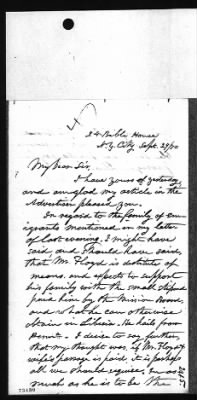 24 Bible House
N.Y. City, Sept. 29/80
My Dear Sir,
I have yours of yesterday
and am glad my article in the
Advertiser pleased you.
In regard to the family of em-
igrants mentioned in my letter
of last evening, I might have
said and should have said,
that Mr. Floyd is destitute of
means, and expects to support
his family with the small stipend
paid him by the Mission Rooms,
and what he can otherwise
obtain in Liberia. He hails from
I desire to say further,
that my thought was, if Mr. Floyd &
wife's passage is paid, it is perhaps
all we should require, in as
much as he is to be the